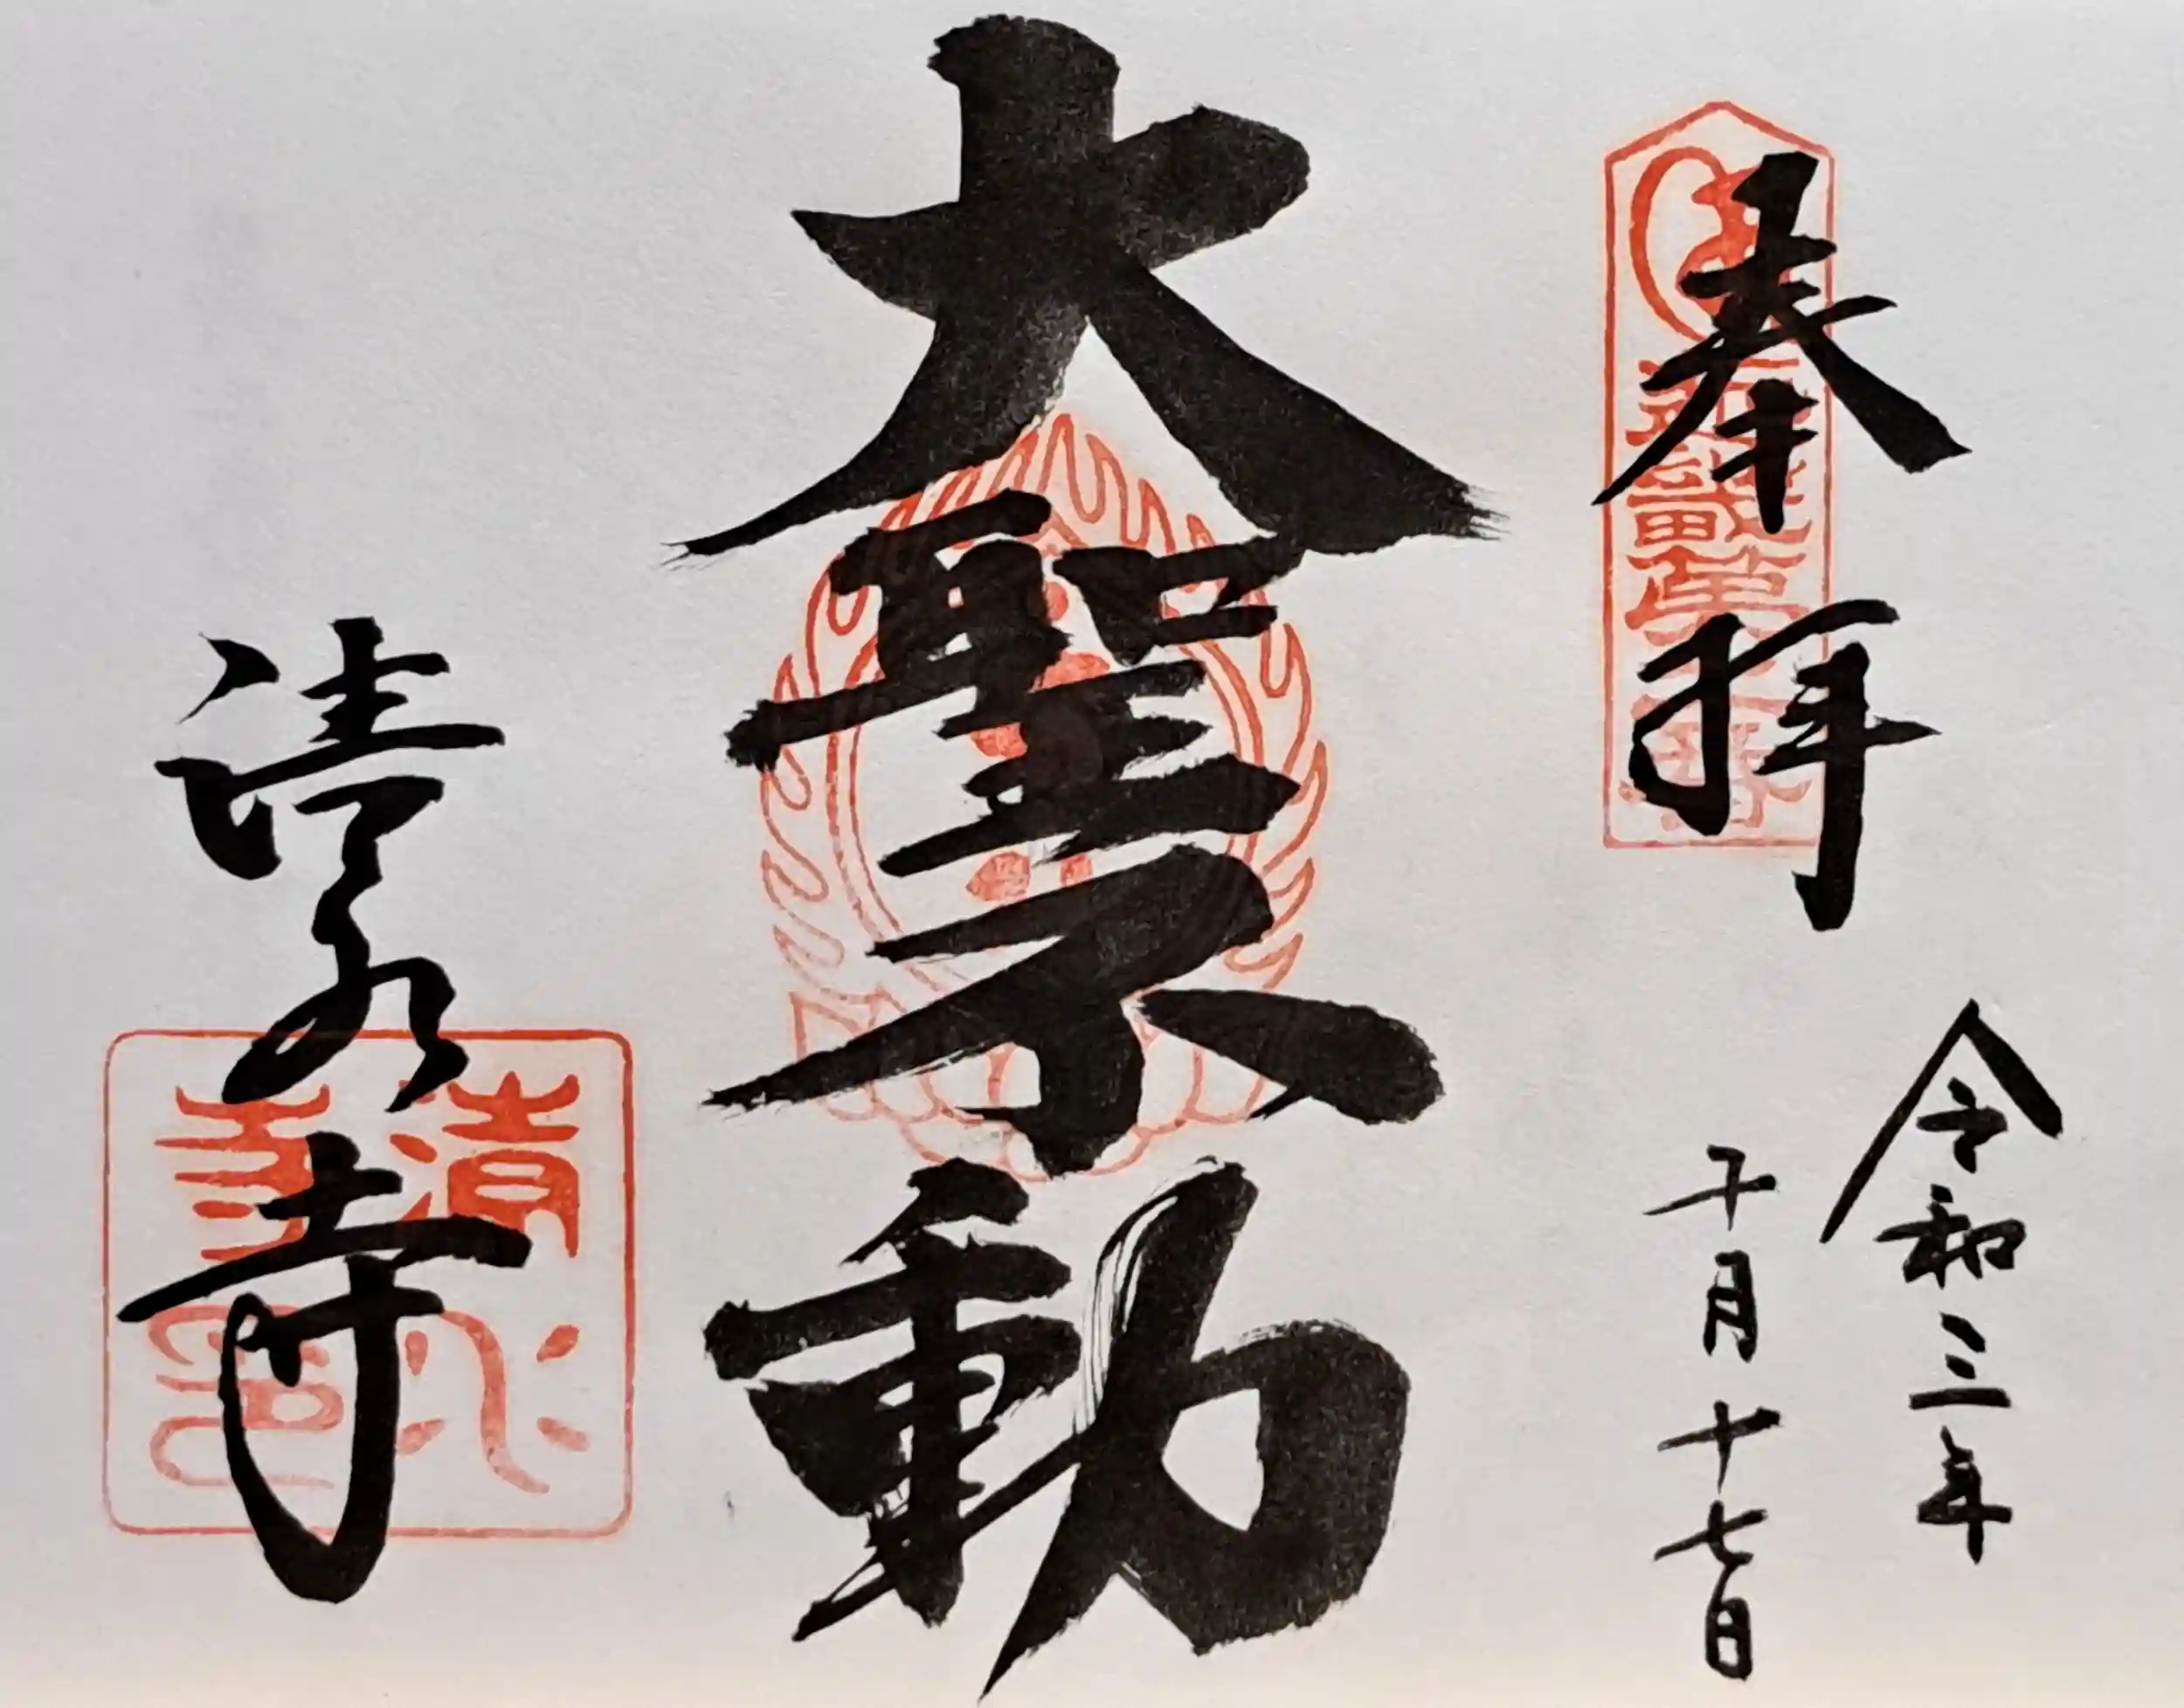 奉拝
令和三年
十月十七日
大聖不動
清水寺
清水寺印